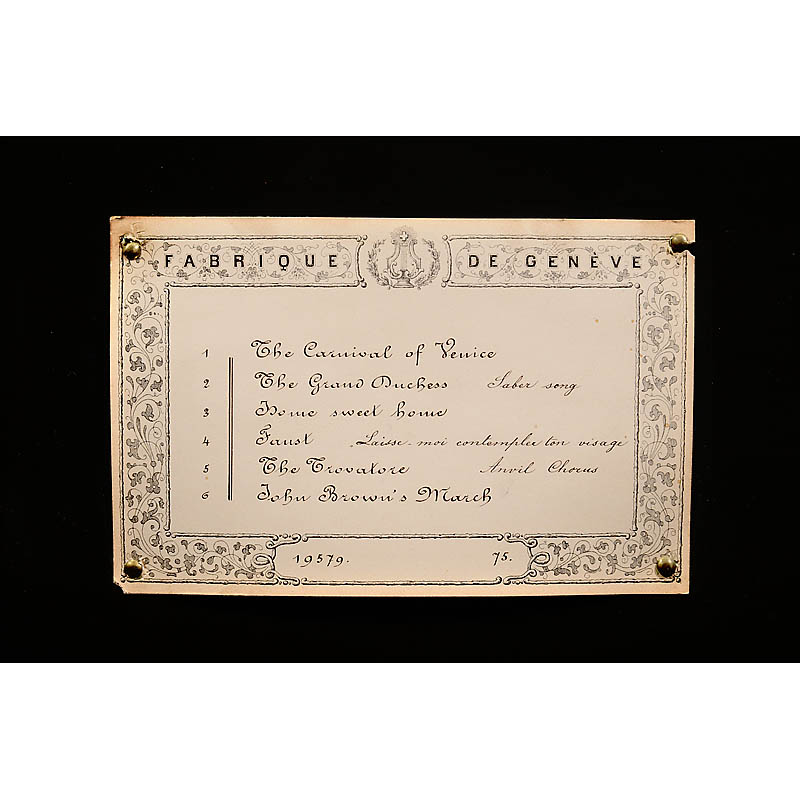 FABRIQUE DE GENÈVE
1 The Carnival of Venice
2 The Grand Duchess Saber song
3 Home sweet home
4 Faust Laisse-moi contempler ton visage
5 The Trovatore Anvil Chorus
6 John Brown's March
19579. 75.